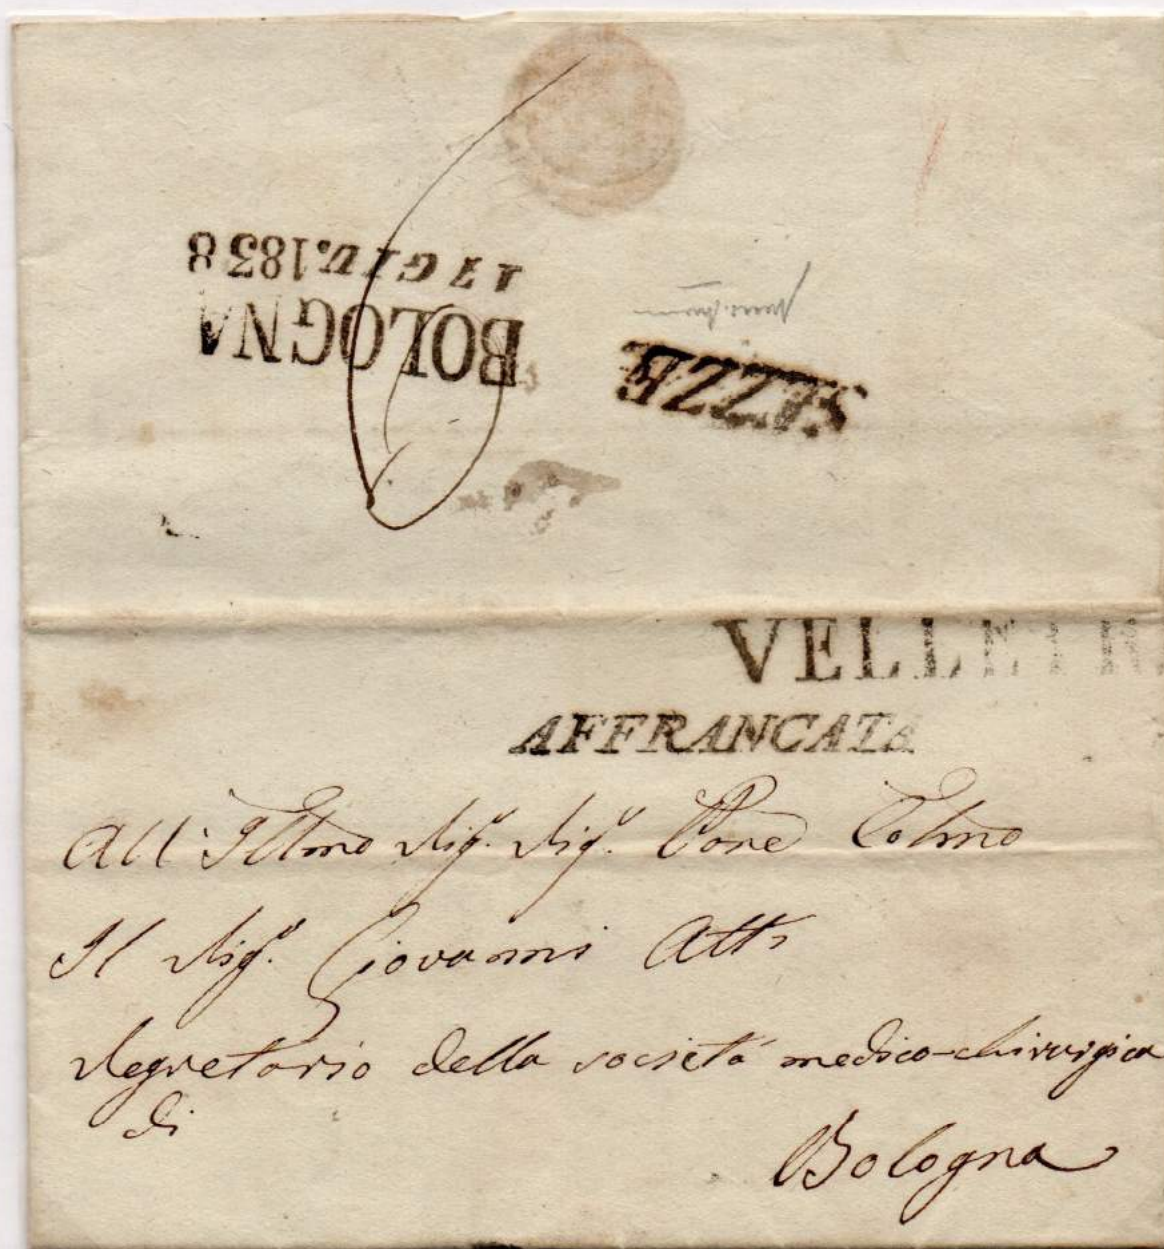 17 GIU. 1838
BOLOGNA
SEZZE
VELLETR
AFFRANCATA
All' Illmo Sigr. Sigr. Pone Colmo
Il Sigr. Giovanni Atti
Segretario della società medico-chirurgica
di
Bologna